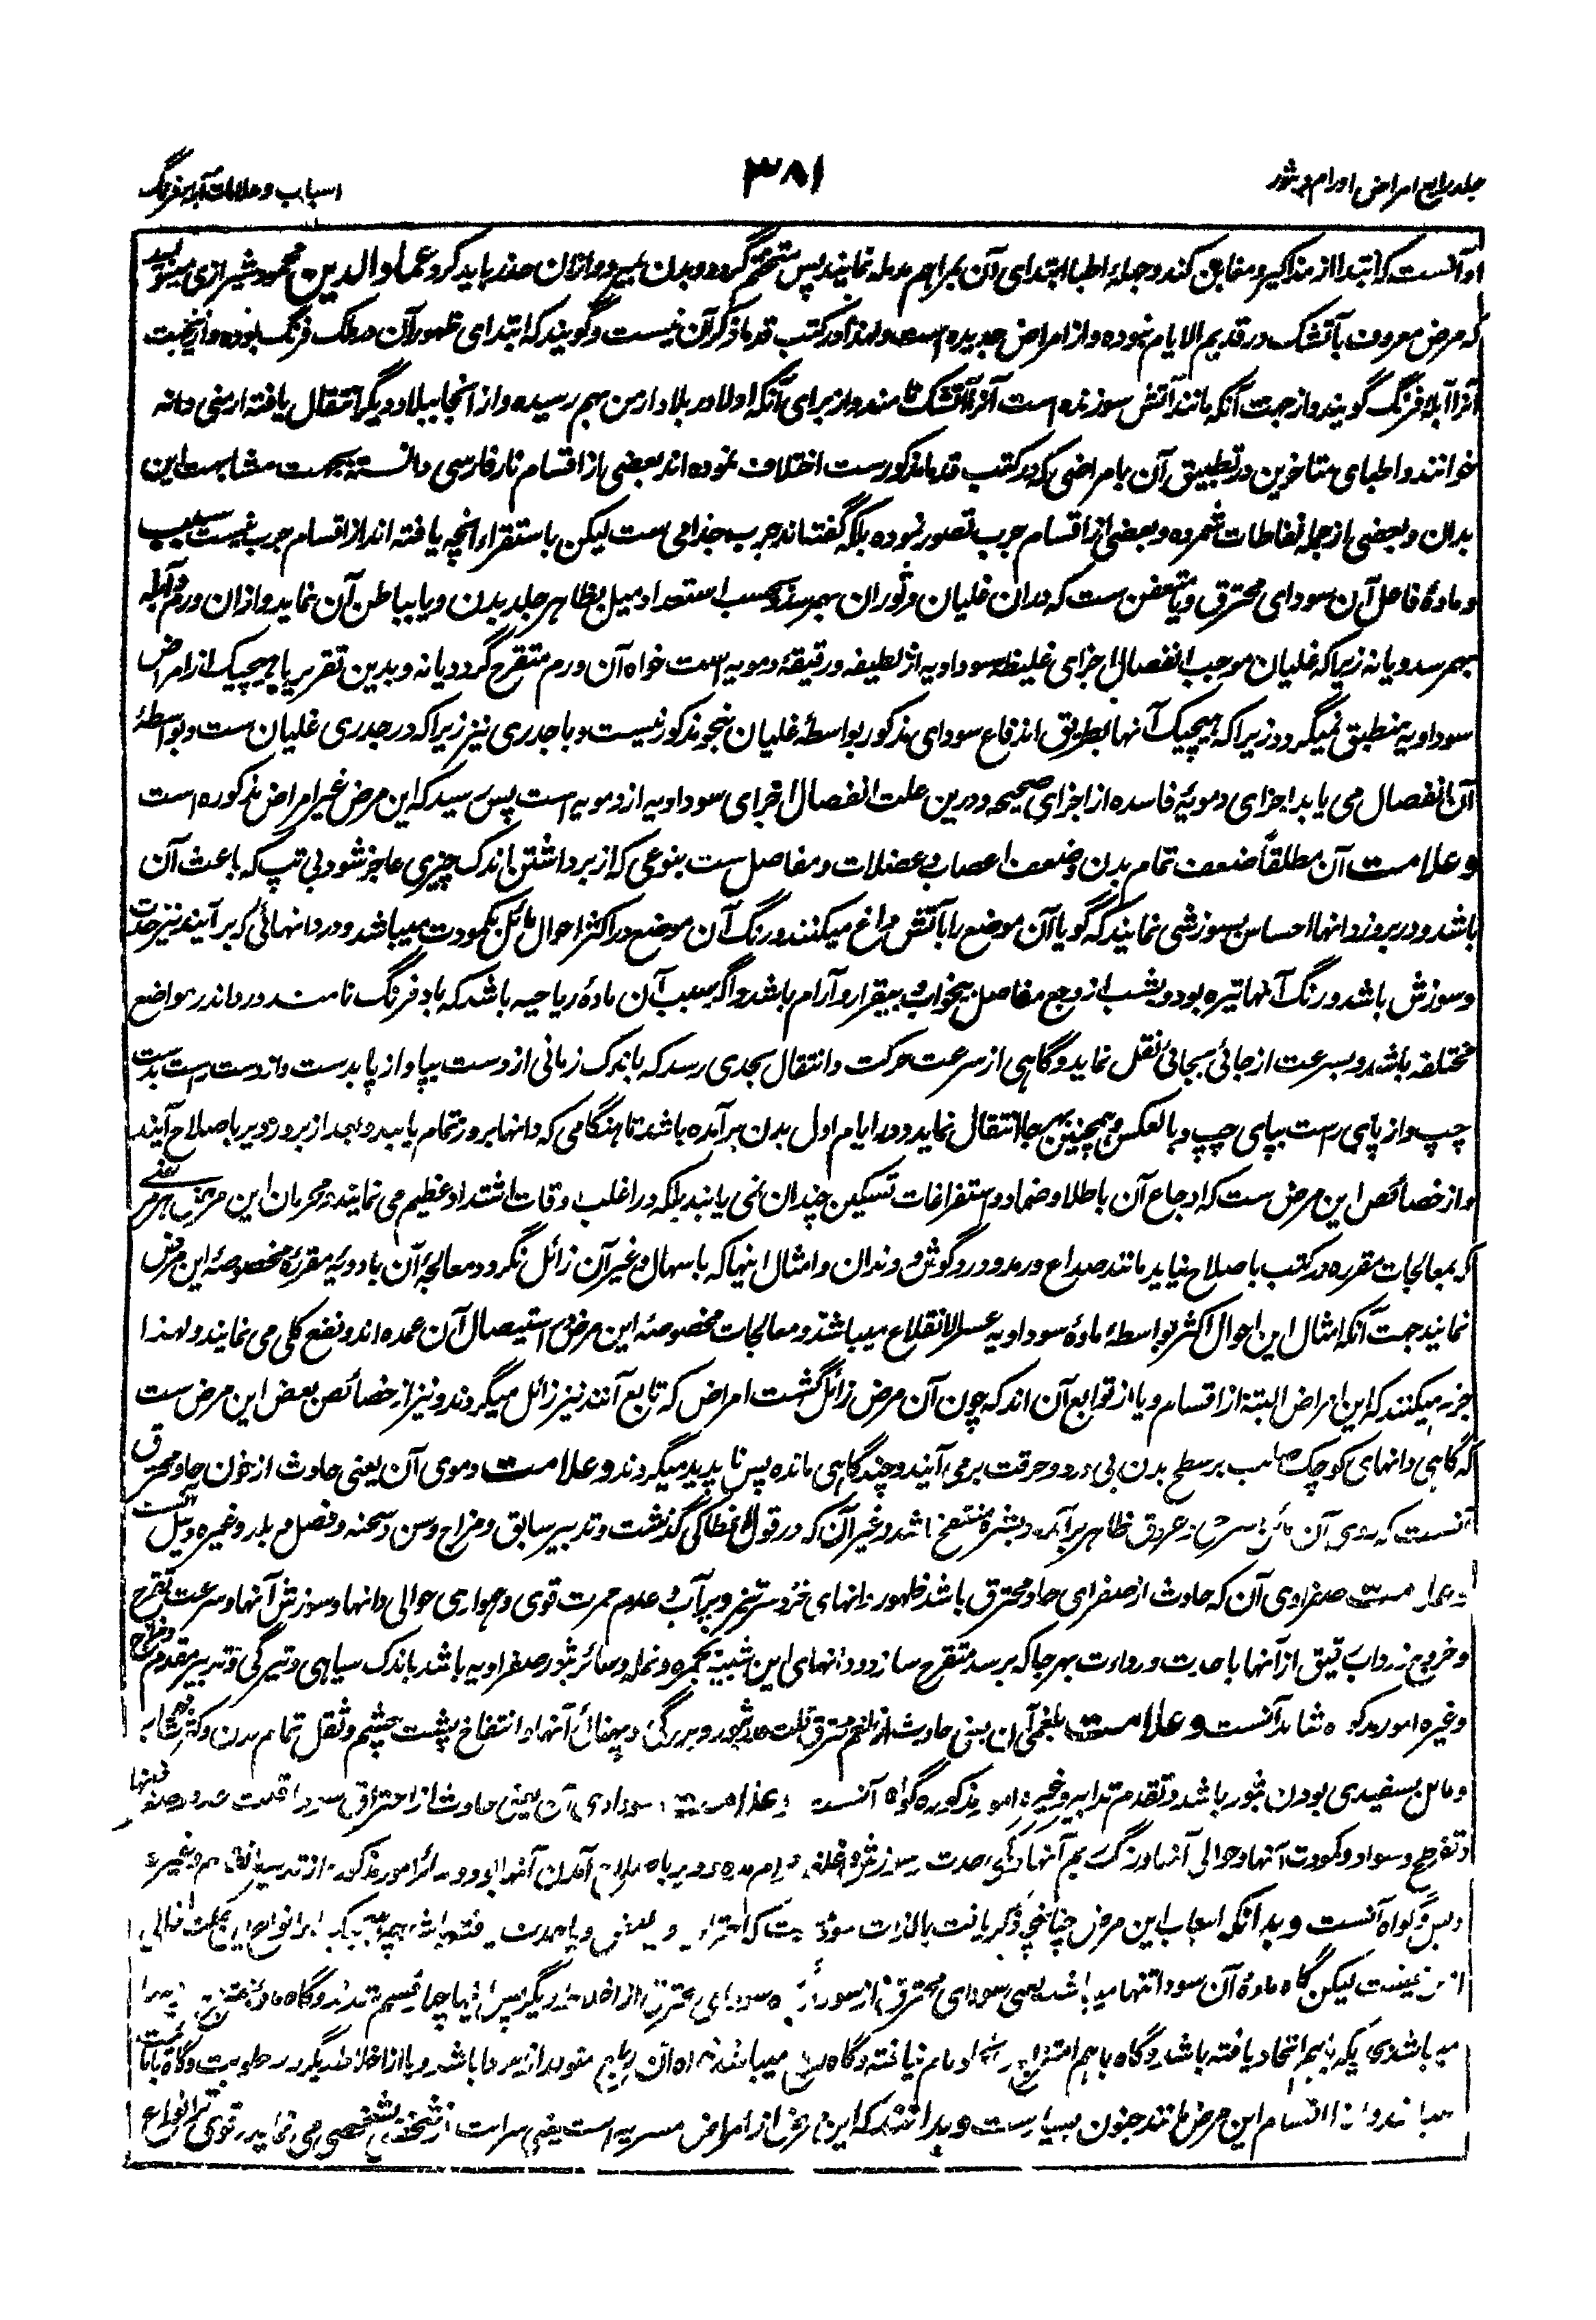 جلد رابع امراض اورام و بثور
۳۸۱
اسباب و علامات آبله فرنگ
او آنست که ابتدا از مذاکیر و مغابن کند و جمله اطبا ابتدای آن بمراهم مدمله نمایند پس متختم گردد و بدن بمیرد و ازان حذر باید کرد عماد الدین محمود شیرازی مینویسد
که مرض معروف بآتشک در قدیم الایام نبوده و از امراض جدیده است و لهذا در کتب قدما ذکر آن نیست و گویند که ابتدای ظهور آن در ملک فرنگ بوده و ازینجهت
آنرا آبله فرنگ گویند و از جهت آنکه مانند آتش سوزنده است آنرا آتشک نامند و از برای آنکه اولا در بلاد ارمن بهم رسیده و از انجا ببلاد دیگر انتقال یافته ارمنی دانه
خوانند و اطبای متاخرین در تطبیق آن بامراضی که در کتب قدما مذکورست اختلاف نموده اند بعضی از اقسام نار فارسی دانسته بجهت مشابهت این
بدان و بعضی از جمله نفاطات شمرده و بعضی از اقسام جرب تصور نموده بلکه گفته اند جرب جذامی ست لیکن باستقراء انچه یافته اند از اقسام جرب نیست سبب
و مادهٔ فاعل آن سودای محترق و یا متعفن ست که در ان غلیان و ثوران بهم رسد و بحسب استعداد میل بظاهر جلد بدن و یا بباطن آن نماید و ازان ورم و آبله
بهم رسد و یا نه زیرا که غلیان موجب انفصال اجزای غلیظه سوداویه از لطیفه و رقیقهٔ دمویه است خواه آن ورم متقرح گردد یا نه و بدین تقریر با هیچیک از امراض
سوداویه منطبق نمیگردد زیرا که هیچیک آنها بطریق اندفاع سودای مذکور بواسطهٔ غلیان بنحو مذکور نیست و با جدری نیز زیرا که در جدری غلیان ست و بواسطهٔ
آن انفصال می یابد اجزای دمویهٔ فاسده از اجزای صحیحه و درین علت انفصال اجزای سوداویه از دمویه است پس رسید که این مرض غیر امراض مذکوره است
و علامت آن مطلقاً ضعف تمام بدن و ضعف اعصاب و عضلات و مفاصل ست بنوعی که از برداشتن اندک چیزی عاجز شود بی تپ که باعث آن
باشد و در بروز دانها احساس بسوزشی نمایند که گویا آن موضع را بآتش داغ میکنند و رنگ آن موضع در اکثر احوال مائل بکمودت میباشد و در دانهائی که برآیند نیز حدت
و سوزش باشد و رنگ آنها تیره بود و شب از وجع مفاصل بیخواب و بیقرار و آرام باشد و اگر سبب آن مادهٔ ریاحیه باشد که باد فرنگ نامند درد اندر مواضع
مختلفه باشد و بسرعت از جائی بجائی نقل نماید و گاهی از سرعت حرکت و انتقال بحدی رسد که باندک زمانی از دست بپا و از پا بدست و از دست راست بدست
چپ و از پای راست بپای چپ و بالعکس و همچنین بهر جا انتقال نماید و در ایام اول بدن برآمده باشد تا هنگامی که دانها بروز تمام یابد و بعد از بروز دیر باصلاح آیند
و از خصائص این مرض ست که اوجاع آن باطلا و ضماد و استفراغات تسکین چندان نمی یابند بلکه در اغلب اوقات اشتداد عظیم می نمایند و مجربان این مرض هر مرضی
که بمعالجات مقرره در کتب باصلاح نیاید مانند صداع و رمد و درد گوش و دندان و امثال اینها که باسهال و غیر آن زائل نگردد معالجهٔ آن بادویهٔ مقررهٔ مخصوصهٔ این مرض
نمایند جهت آنکه امثال این احوال اکثر بواسطهٔ مادهٔ سوداویه عسر الانقلاع میباشد و معالجات مخصوصهٔ این مرض در استیصال آن عمده اند و نفع کلی می نمایند و لهذا
جزم میکنند که این امراض البته از اقسام و یا از توابع آن اند که چون آن مرض زائل گشت امراض که تابع آنند نیز زائل میگردند و نیز از خصائص بعض این مرض ست
که گاهی دانهای کوچک صلب بر سطح بدن بی درد و حرقت برمی آیند و چند گاهی مانده پس ناپدید میگردند و علامت دموی آن یعنی حادث از خون حاد محترق
آنست که روی آن مائل بسرخی و عروق ظاهر برآمده و بشره منتفخ باشد و غیر آن که در قول انطاکی گذشت و تدبیر سابق و مزاج و سن و سحنه و فصل و بلد و غیره دلیل آنست
و علامت صفراوی آن که حادث از صفرای حاد محترق باشد ظهور دانهای خرد سرتیز و پرآب و عدم حمرت قوی و همواری حوالی دانها و سوزش آنها و سرعت تقرح
و خروج زرداب رقیق از آنها با حدت و رداءت بهر جا که برسد متقرح سازد و دانهای این شبیه بجمره و نمله و سائر بثور صفراویه باشد باندک سیاهی و تیرگی و تدبیر مقدم و مزاج
و غیره امور مذکوره شاهد آنست و علامت بلغمی آن یعنی حادث از بلغم محترق قلت بثور و بزرگی و پهنائی آنها و انتفاخ پشت چشم و ثقل تمام بدن
و مائل بسفیدی بودن بثور باشد و تقدم تدابیر و غیره امور مذکوره گواه آنست و علامت سوداوی آن یعنی حادث از احتراق سودا قلت عدد
و تفرطح و سواد و کمودت آنها و حوالی آنها و رنگ بهم آنها و کمی حدت و سوزش و دیر باصلاح آمدن آنها بود و سائر امور مذکوره از تدبیر سابق هم و غیره
دلیل و گواه آنست و بدانکه اسباب این مرض چنانچه ذکر یافت بالذات سوداست که احتراق و تعفن و یا حدت یافته باشد
لیکن گاه مادهٔ آن سودا تنها میباشد یعنی سودای محترق از سودا و سودای محترق از اخلاط دیگر پس اینها چهار قسم شدند و گاه مادهٔ ممتزج
میباشد که باهم اتحاد یافته باشد و گاه باهم امتزاج و اتحاد تمام نیافته و گاه ریح میباشد خواه آن ریاح متولد از سودا باشد و یا از اخلاط دیگر
میباشد و اقسام این مرض مانند جنون بسیارست و بدانند که این مرض از امراض مسریه است یعنی سرایت از شخصی بشخصی می نماید و قوی ترین انواع